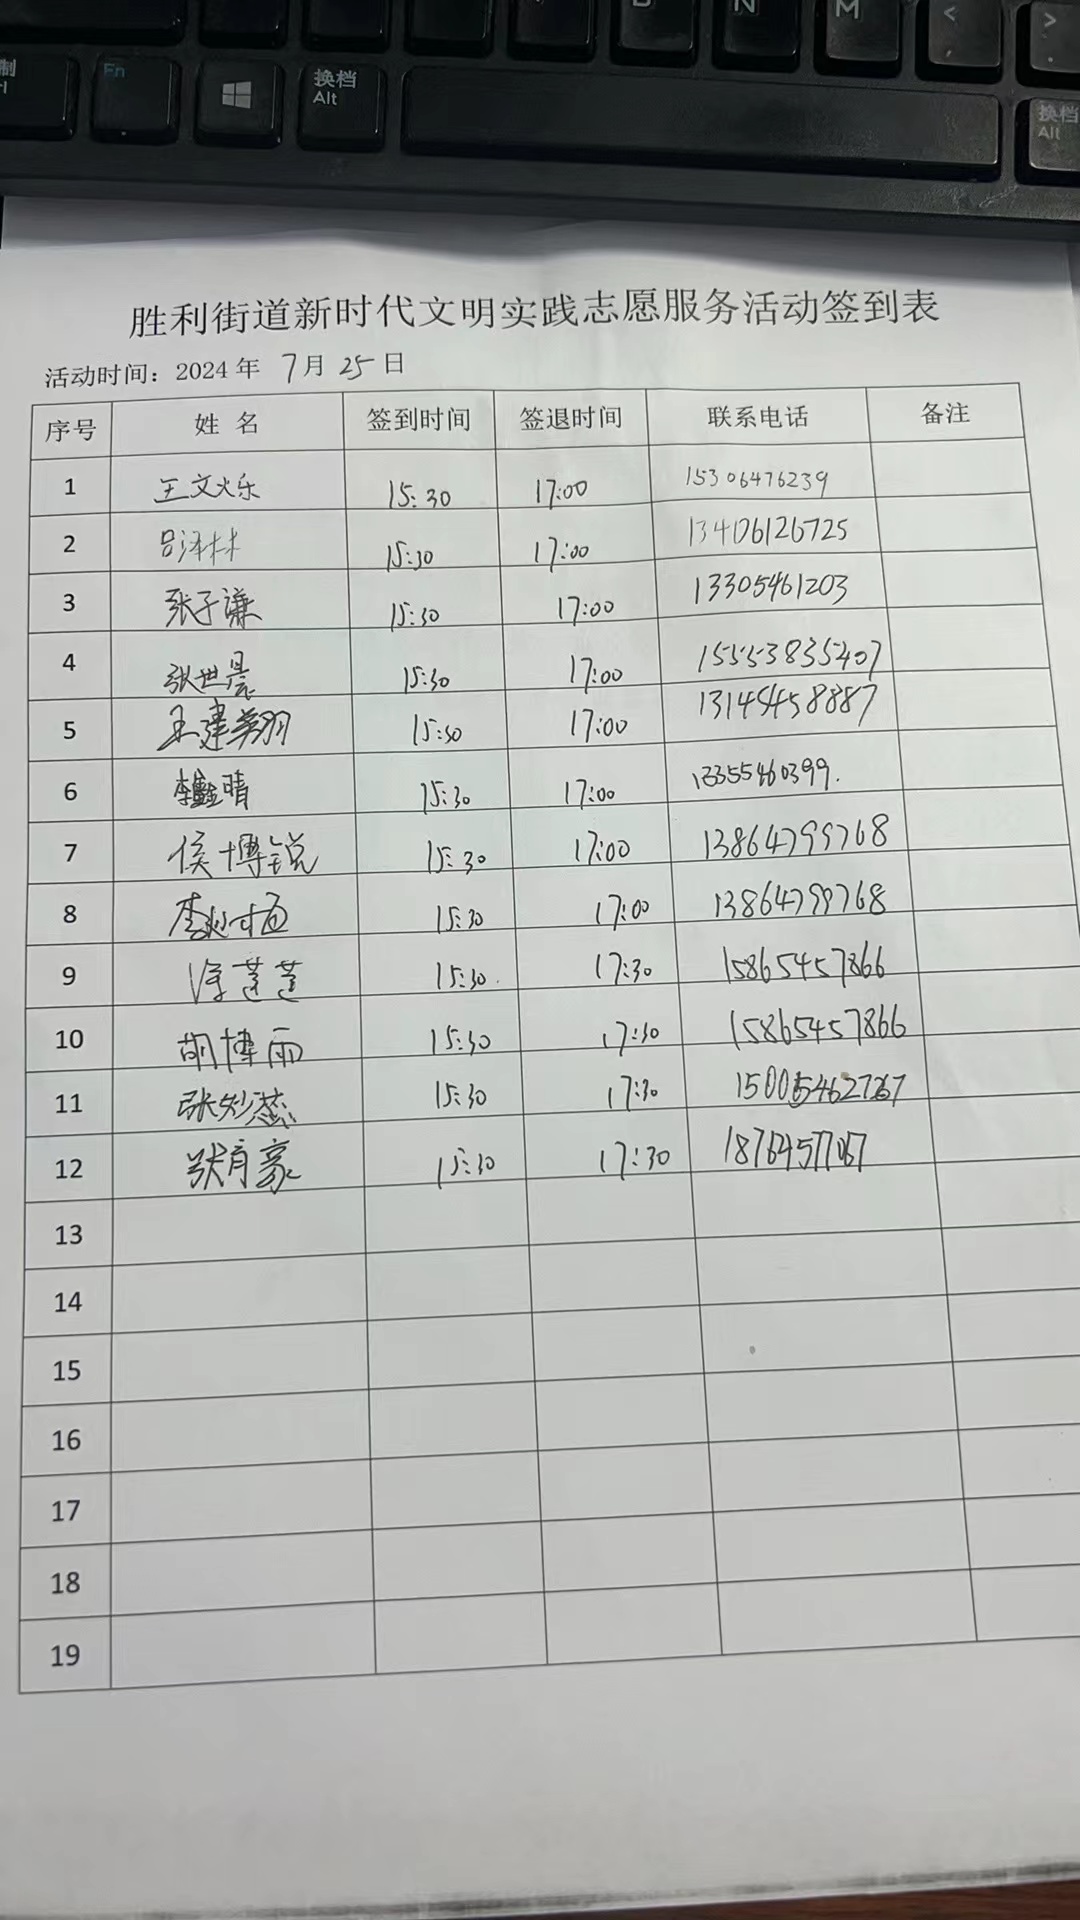 B N M < >
制 Fn 换档 换档
Alt Alt
胜利街道新时代文明实践志愿服务活动签到表
活动时间：2024 年 7 月 25 日
序号 姓 名 签到时间 签退时间 联系电话 备注
1 王文烁 15:30 17:00 15306476239
2 吕泽林 15:30 17:00 13406126725
3 张子谦 15:30 17:00 13305461203
4 张世晨 15:30 17:00 15553835407
5 王建翔 15:30 17:00 13145458887
6 晴 15:30 17:00 13355460399.
7 侯博锐 15:30 17:00 13864799768
8 李 15:30 17:00 13864799768
9 莲莲 15:30 17:30 15865457866
10 胡博雨 15:30 17:30 15865457866
11 张妙蕊 15:30 17:30
12 张育豪 15:30 17:30 18764577067
13
14
15
16
17
18
19